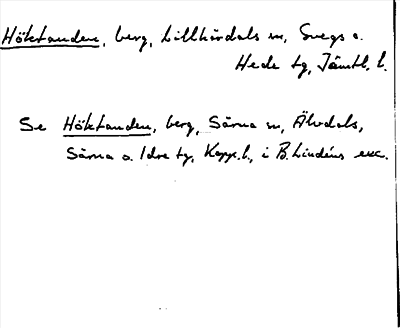 Höktanden, berg, Lillhärdals sn, Svegs o.
Hede tg, Jämtl. l.
Se Höktanden, berg, Särna sn, Älvdals,
Särna o. Idre tg, Kopp. l., i B. Lindéns exc.